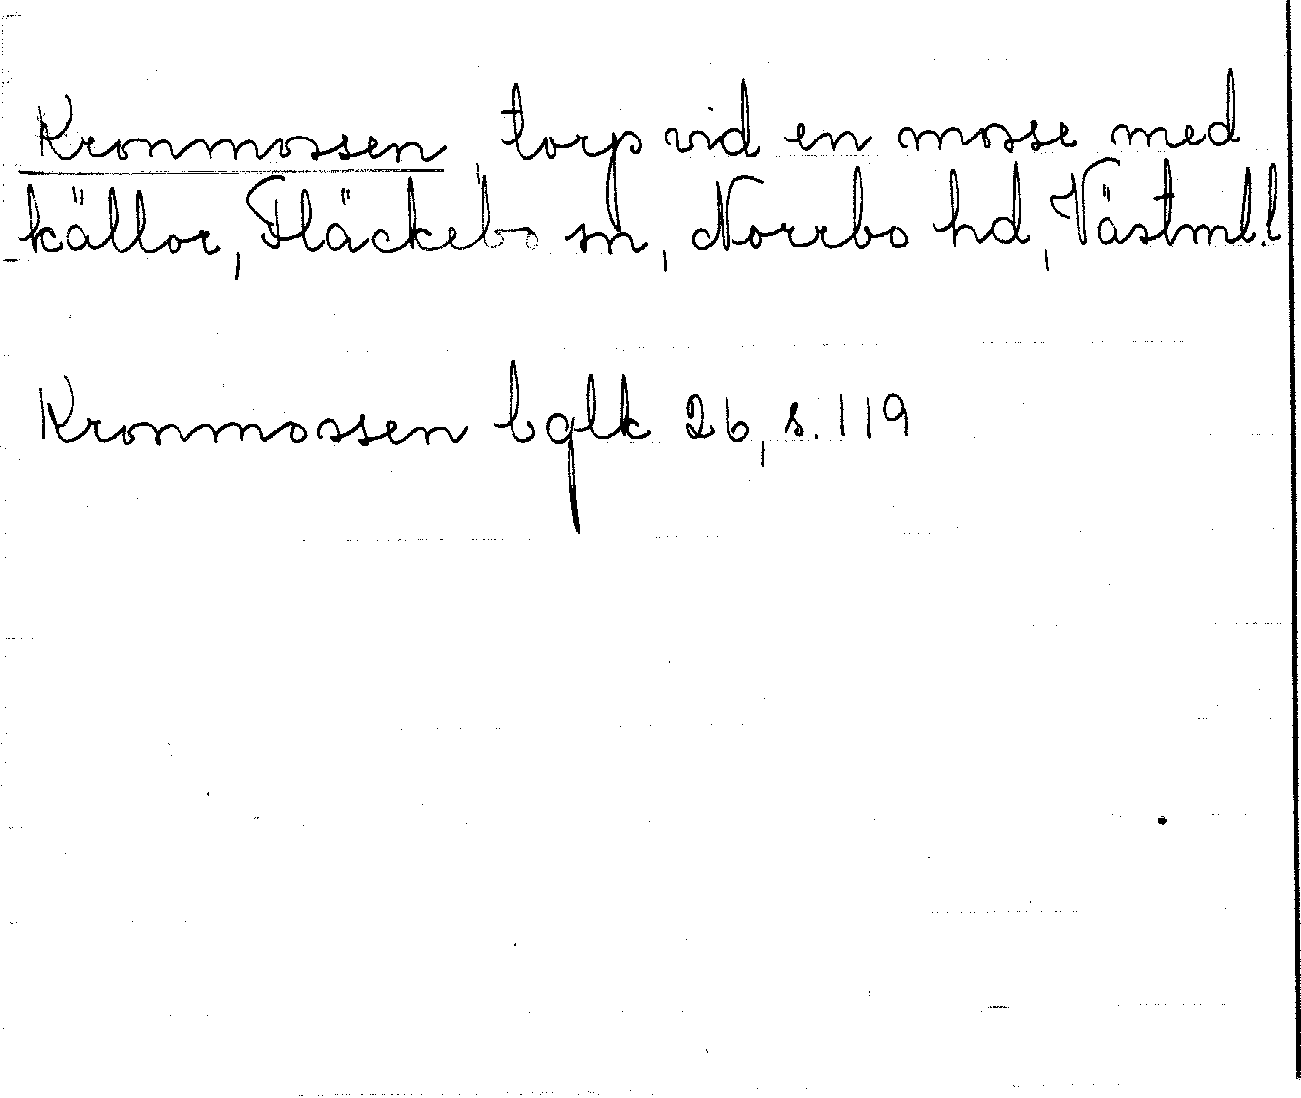 Kronmossen, torp vid en mosse med
källor, Fläckebo sn, Norrbo hd, Västml.l
Kronmossen bglk 26, s. 119